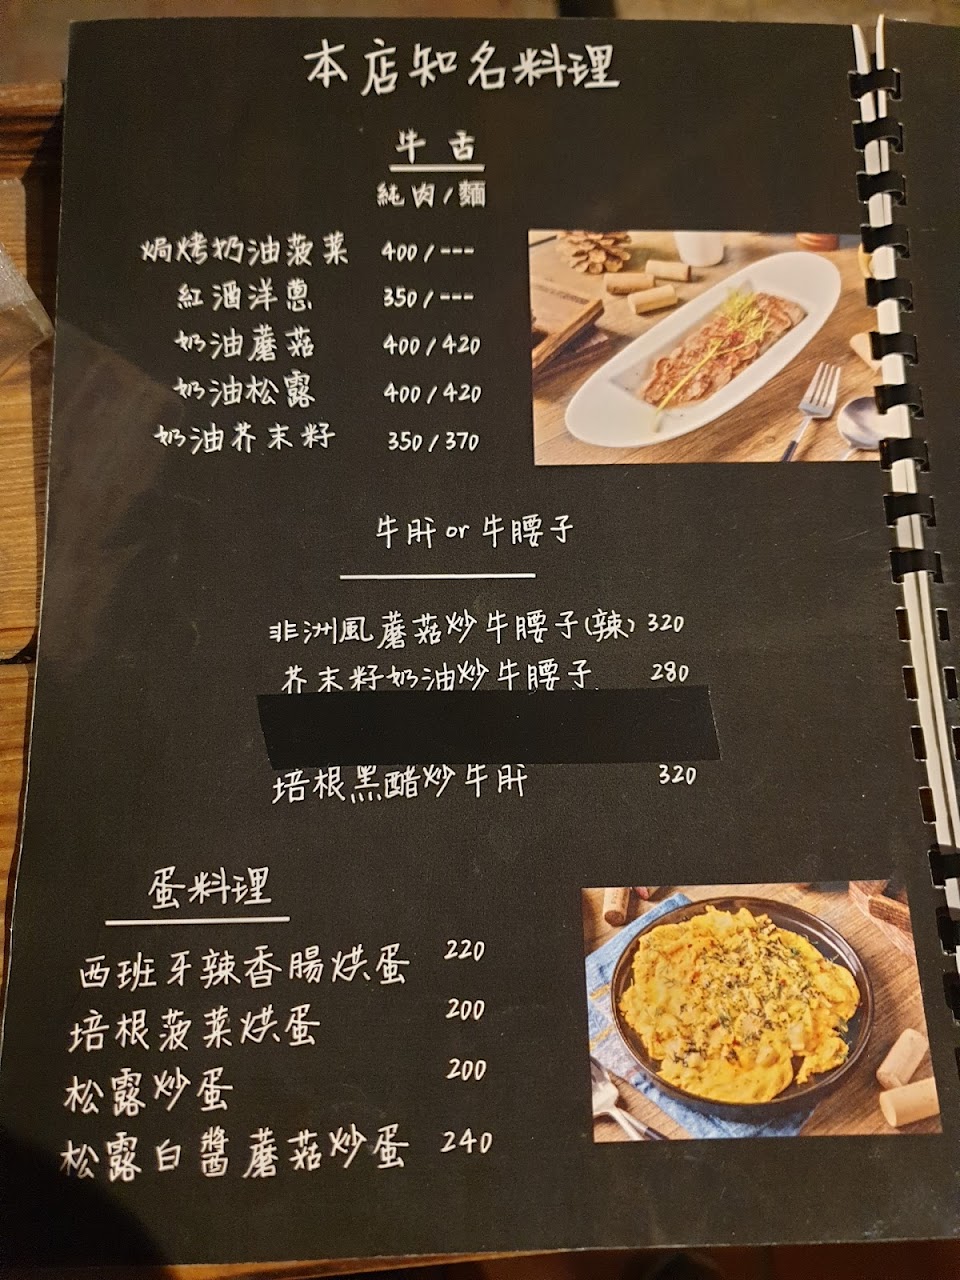 本店知名料理
牛舌
純肉/麵
焗烤奶油菠菜 400/---
紅酒洋蔥 350/---
奶油蘑菇 400/420
奶油松露 400/420
奶油芥末籽 350/370
牛肝or牛腰子
非洲風蘑菇炒牛腰子(辣) 320
芥末籽奶油炒牛腰子 280
培根黑醋炒牛肝 320
蛋料理
西班牙辣香腸烘蛋 220
培根菠菜烘蛋 200
松露炒蛋 200
松露白醬蘑菇炒蛋 240